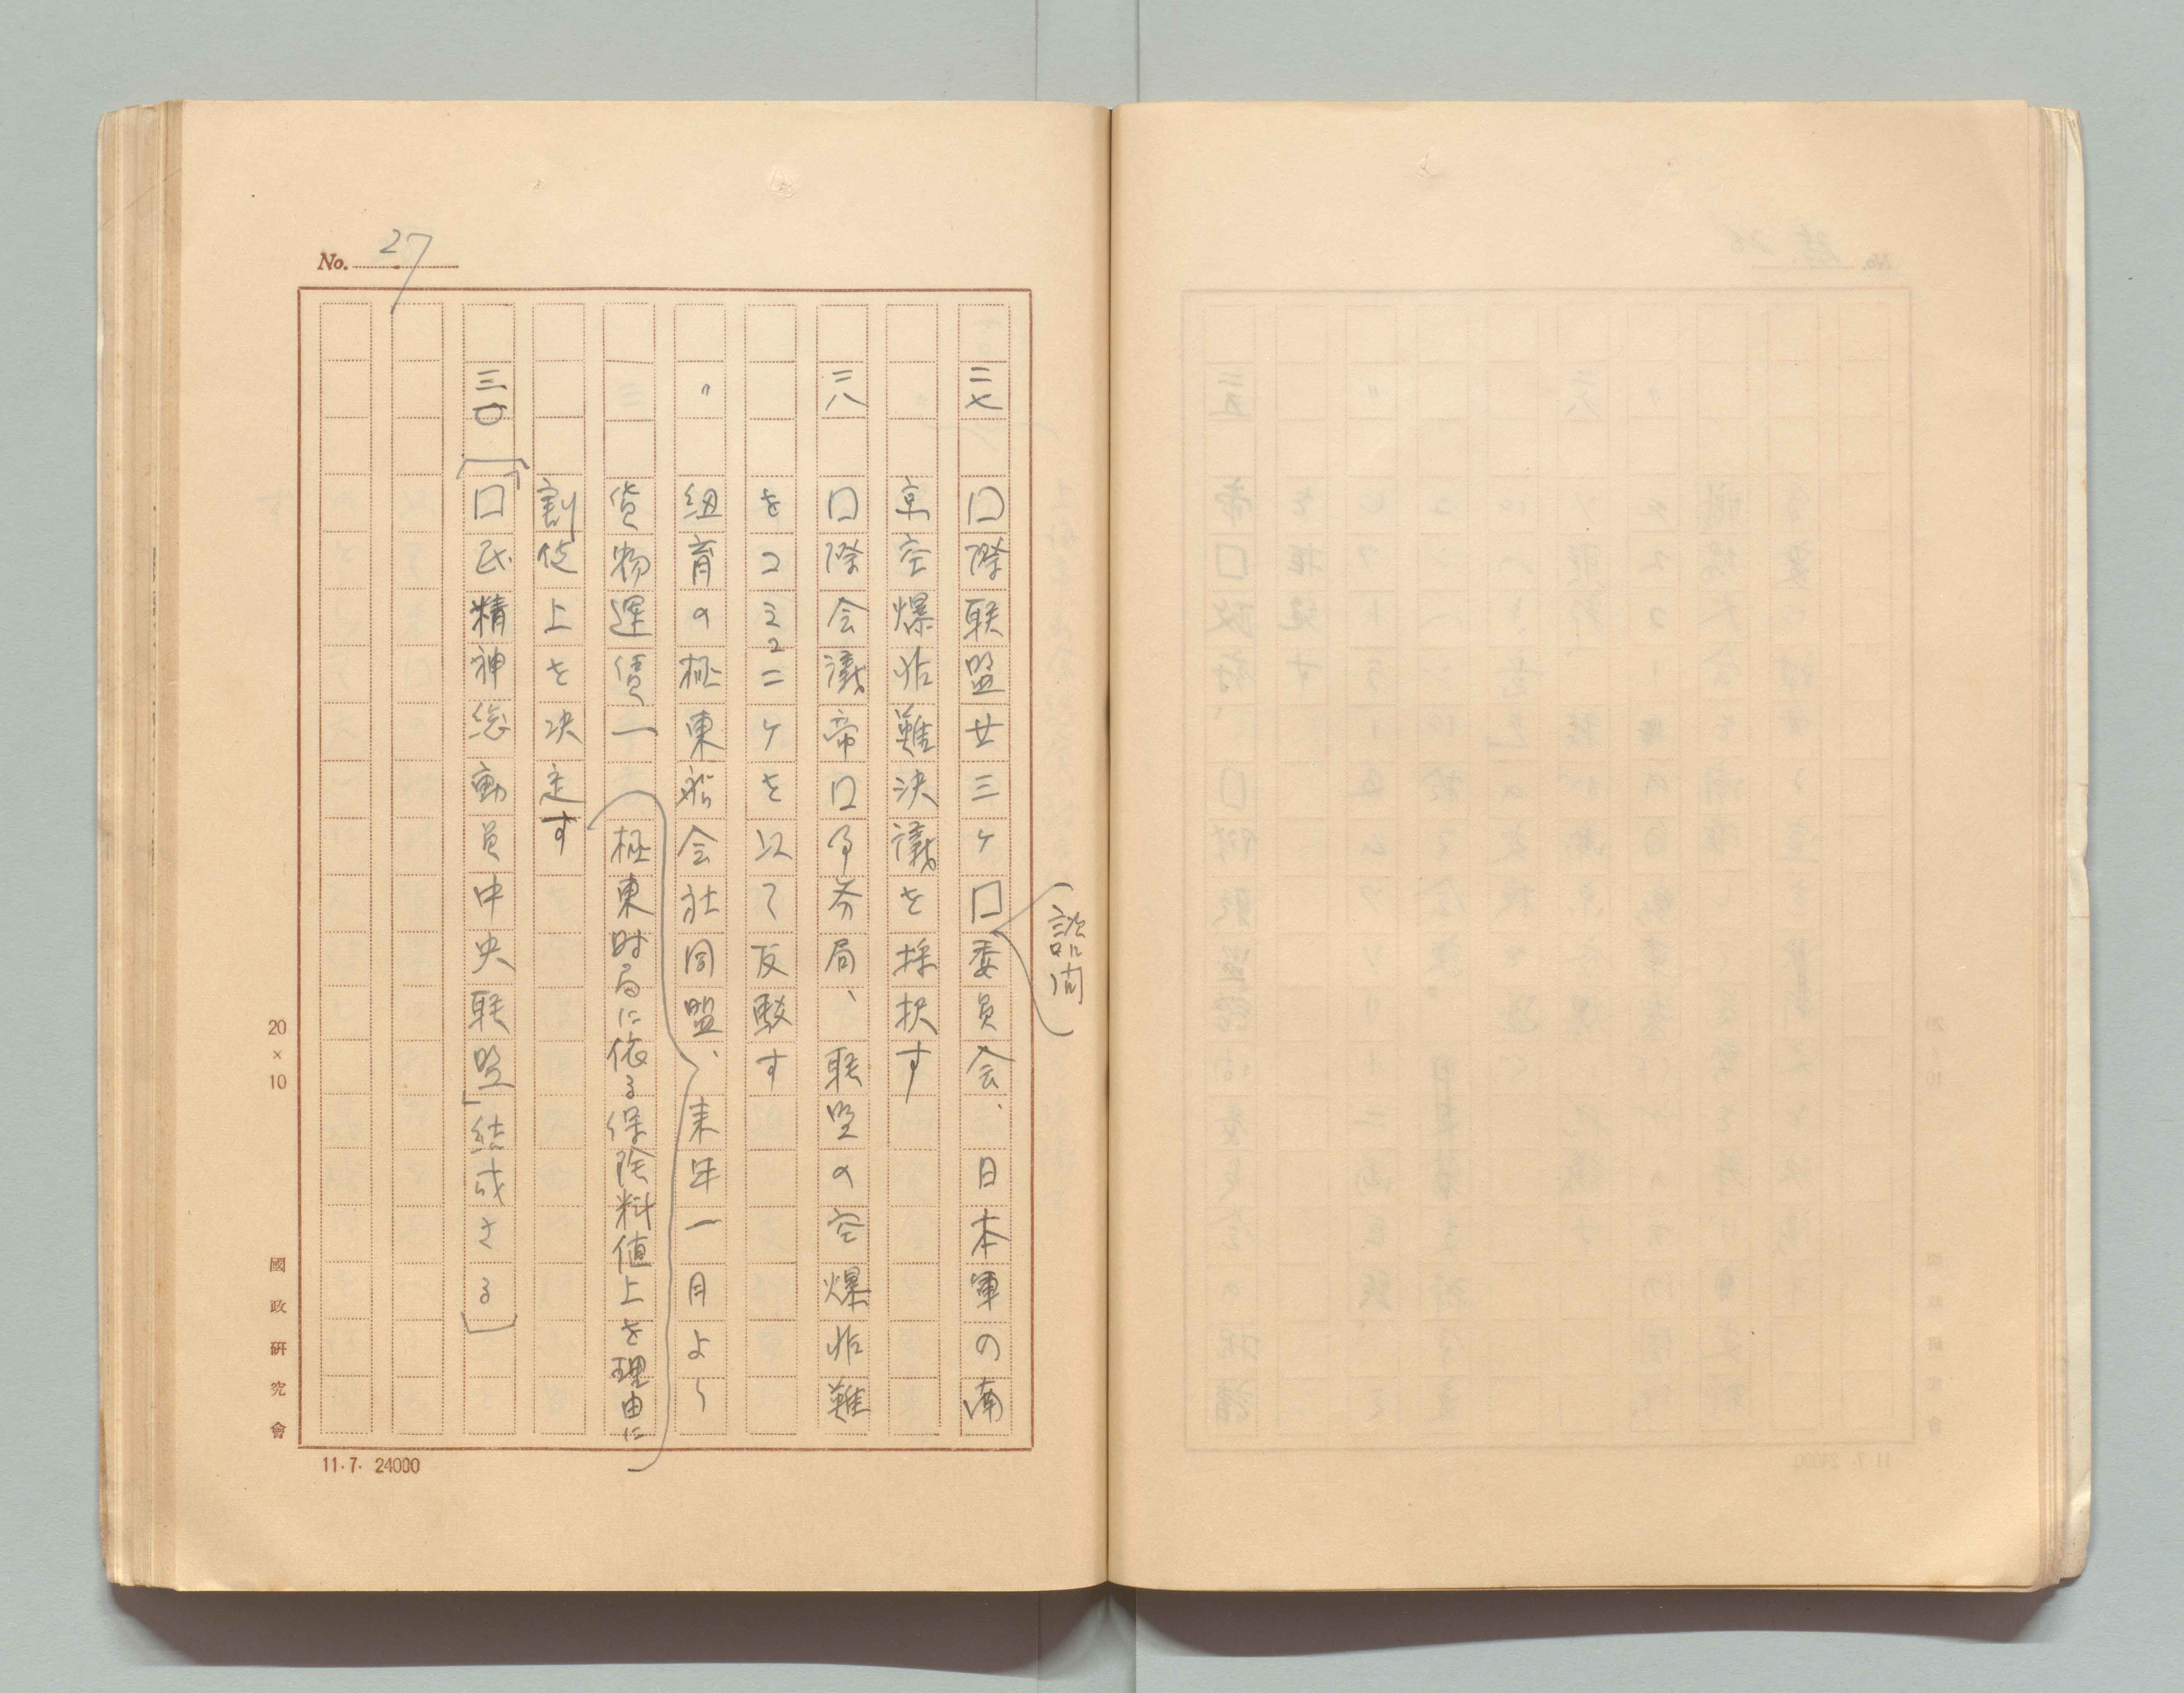 No. 27
諮問
二七 囗際联盟廿三ヶ囗委員会、日本軍の南
京空爆非難決議を採択す
二八 囗際会議帝囗事務局、联盟の空爆非難
をコミュニケを以て反駁す
〃 紐育の極東船会社同盟、来年一月より
貨物運賃一 極東時局に依る保険料値上を理由に
割値上を決定す
三〇 「囗民精神総動員中央联盟」結成さる
20×10
國政研究會
11.7. 24000